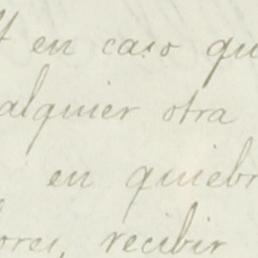 en caso qu
alquier otra
en quiebr
ores, recibir